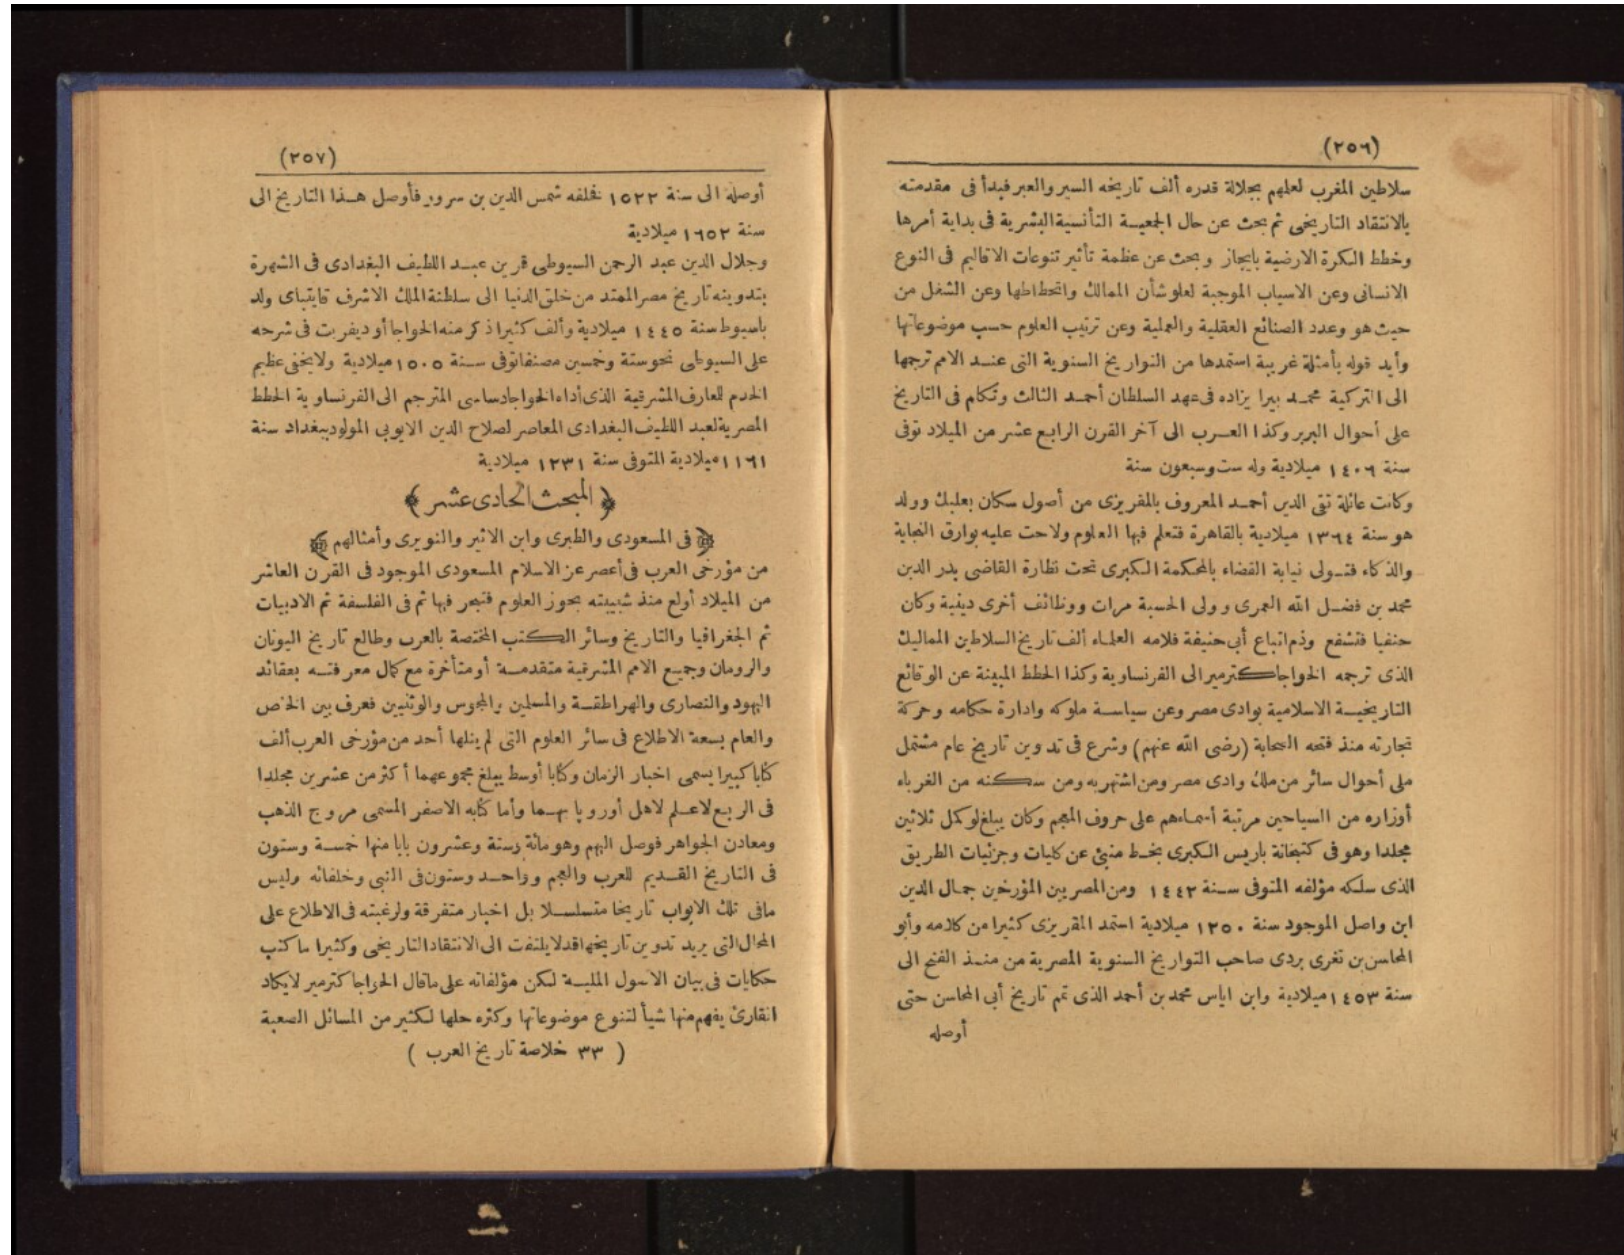 (٢٥٦)
سلاطين المغرب لعلهم بجلالة قدره ألف تاريخه السير والعبر فيدأ فى مقدمته
بالانتقاد التاريخى ثم بحث عن حال الجمعيسة التأنسية البشرية فى بداية أمرها
وخطط الكرة الارضية بايجاز وبحث عن عظمة تأثير تنوعات الاقاليم فى النوع
الانسانى وعن الاسباب الموجبة لعلو شأن الممالك وانحطاطها وعن الشغل من
حيث هو وعدد الصنائع العقلية والعملية وعن ترتيب العلوم حسب موضوعاتها
وأيد قوله بأمثلة غريبة استمدها من التواريخ السنوية التى عند الامم ترجمها
الى التركية محمد بيرا يزاده فى عهد السلطان أحمد الثالث وتكلم فى التاريخ
على أحوال البربر وكذا العرب الى آخر القرن الرابع عشر من الميلاد توفى
سنة ١٤٠٦ ميلادية وله ست وسبعون سنة
وكانت عائلة تقى الدين أحمد المعروف بالمقريزى من أصول سكان بعلبك وولد
هو سنة ١٣٦٤ ميلادية بالقاهرة فتعلم فيها العلوم ولاحت عليه بوارق النجابة
والذكاء فتولى نيابة القضاء بالمحكمة الكبرى تحت نظارة القاضى بدر الدين
محمد بن فضل الله العمرى وولى الحسبة مرات ووظائف أخرى دينية وكان
حنفيا فتشفع وذم اتباع أبى حنيفة فلامه العلماء ألف تاريخ السلاطين المماليك
الذى ترجمه الخواجا كترمير الى الفرنساوية وكذا الخطط المبينة عن الوقائع
التاريخية الاسلامية بوادى مصر وعن سياسة ملوكه وادارة حكامه وحركة
تجارته منذ فتحه الصحابة (رضى الله عنهم) وشرع فى تدوين تاريخ عام مشتمل
على أحوال سائر من ملك وادى مصر ومن اشتهر به ومن سكنه من الغرباء
أوزاره من السياحين مرتبة أسماءهم على حروف المعجم وكان يبلغ لو كمل ثلاثين
مجلدا وهو فى كتبخانة باريس الكبرى بخط منبئ عن كليات وجزئيات الطريق
الذى سلكه مؤلفه المتوفى سنة ١٤٤٢ ومن المصريين المؤرخين جمال الدين
ابن واصل الموجود سنة ١٢٥٠ ميلادية استمد المقريزى كثيرا من كلامه وأبو
المحاسن بن تغرى بردى صاحب التواريخ السنوية المصرية من منذ الفتح الى
سنة ١٤٥٣ ميلادية وابن اياس محمد بن أحمد الذى تمم تاريخ أبى المحاسن حتى
أوصله
(٢٥٧)
أوصله الى سنة ١٥٢٢ فخلفه شمس الدين بن سرور فأوصل هذا التاريخ الى
سنة ١٦٥٢ ميلادية
وجلال الدين عبد الرحمن السيوطى قرين عبد اللطيف البغدادى فى الشهرة
بتدوينه تاريخ مصر الممتد من خلق الدنيا الى سلطنة الملك الاشرف قايتباى ولد
باسيوط سنة ١٤٤٥ ميلادية وألف كثيرا ذكر منه الخواجا أوديفريت فى شرحه
على السيوطى نحو ستة وخمسين مصنفا توفى سنة ١٥٠٥ ميلادية ولا يخفى عظيم
الخدم للعارف المشرقية الذى أداه الخواجا دساسى المترجم الى الفرنساوية الخطط
المصرية لعبد اللطيف البغدادى المعاصر لصلاح الدين الايوبى المولود ببغداد سنة
١١٦١ ميلادية المتوفى سنة ١٢٣١ ميلادية
﴿ المبحث الحادى عشر ﴾
﴿ فى المسعودى والطبرى وابن الاثير والنويرى وأمثالهم ﴾
من مؤرخى العرب فى أعصر عز الاسلام المسعودى الموجود فى القرن العاشر
من الميلاد أولع منذ شبيبته بحوز العلوم فتبحر فيها ثم فى الفلسفة ثم الادبيات
ثم الجغرافيا والتاريخ وسائر الكتب المختصة بالعرب وطالع تاريخ اليونان
والرومان وجميع الامم المشرقية متقدمة أو متأخرة مع كمال معرفته بعقائد
اليهود والنصارى والهراطقة والمسلمين والمجوس والوثنيين فعرف بين الخاص
والعام بسعة الاطلاع فى سائر العلوم التى لم ينلها أحد من مؤرخى العرب ألف
كتابا كبيرا يسمى اخبار الزمان وكتابا أوسط يبلغ مجموعهما أكثر من عشرين مجلدا
فى الربع لاعلم لاهل أوروپا بهما وأما كتابه الاصغر المسمى مروج الذهب
ومعادن الجواهر فوصل اليهم وهو مائة وستة وعشرون بابا منها خمسة وستون
فى التاريخ القديم للعرب والعجم وواحد وستون فى النبى وخلفائه وليس
مافى تلك الابواب تاريخا متسلسلا بل اخبار متفرقة ولرغبته فى الاطلاع على
المحال التى يريد تدوين تاريخها قد لا يلتفت الى الانتقاد التاريخى وكثيرا ما كتب
حكايات فى بيان الاصول الملية لكن مؤلفاته على ماقال الخواجا كترمير لا يكاد
القارئ يفهم منها شيأ لتنوع موضوعاتها وكثرة حلها لكثير من المسائل الصعبة
( ٣٣ خلاصة تاريخ العرب )